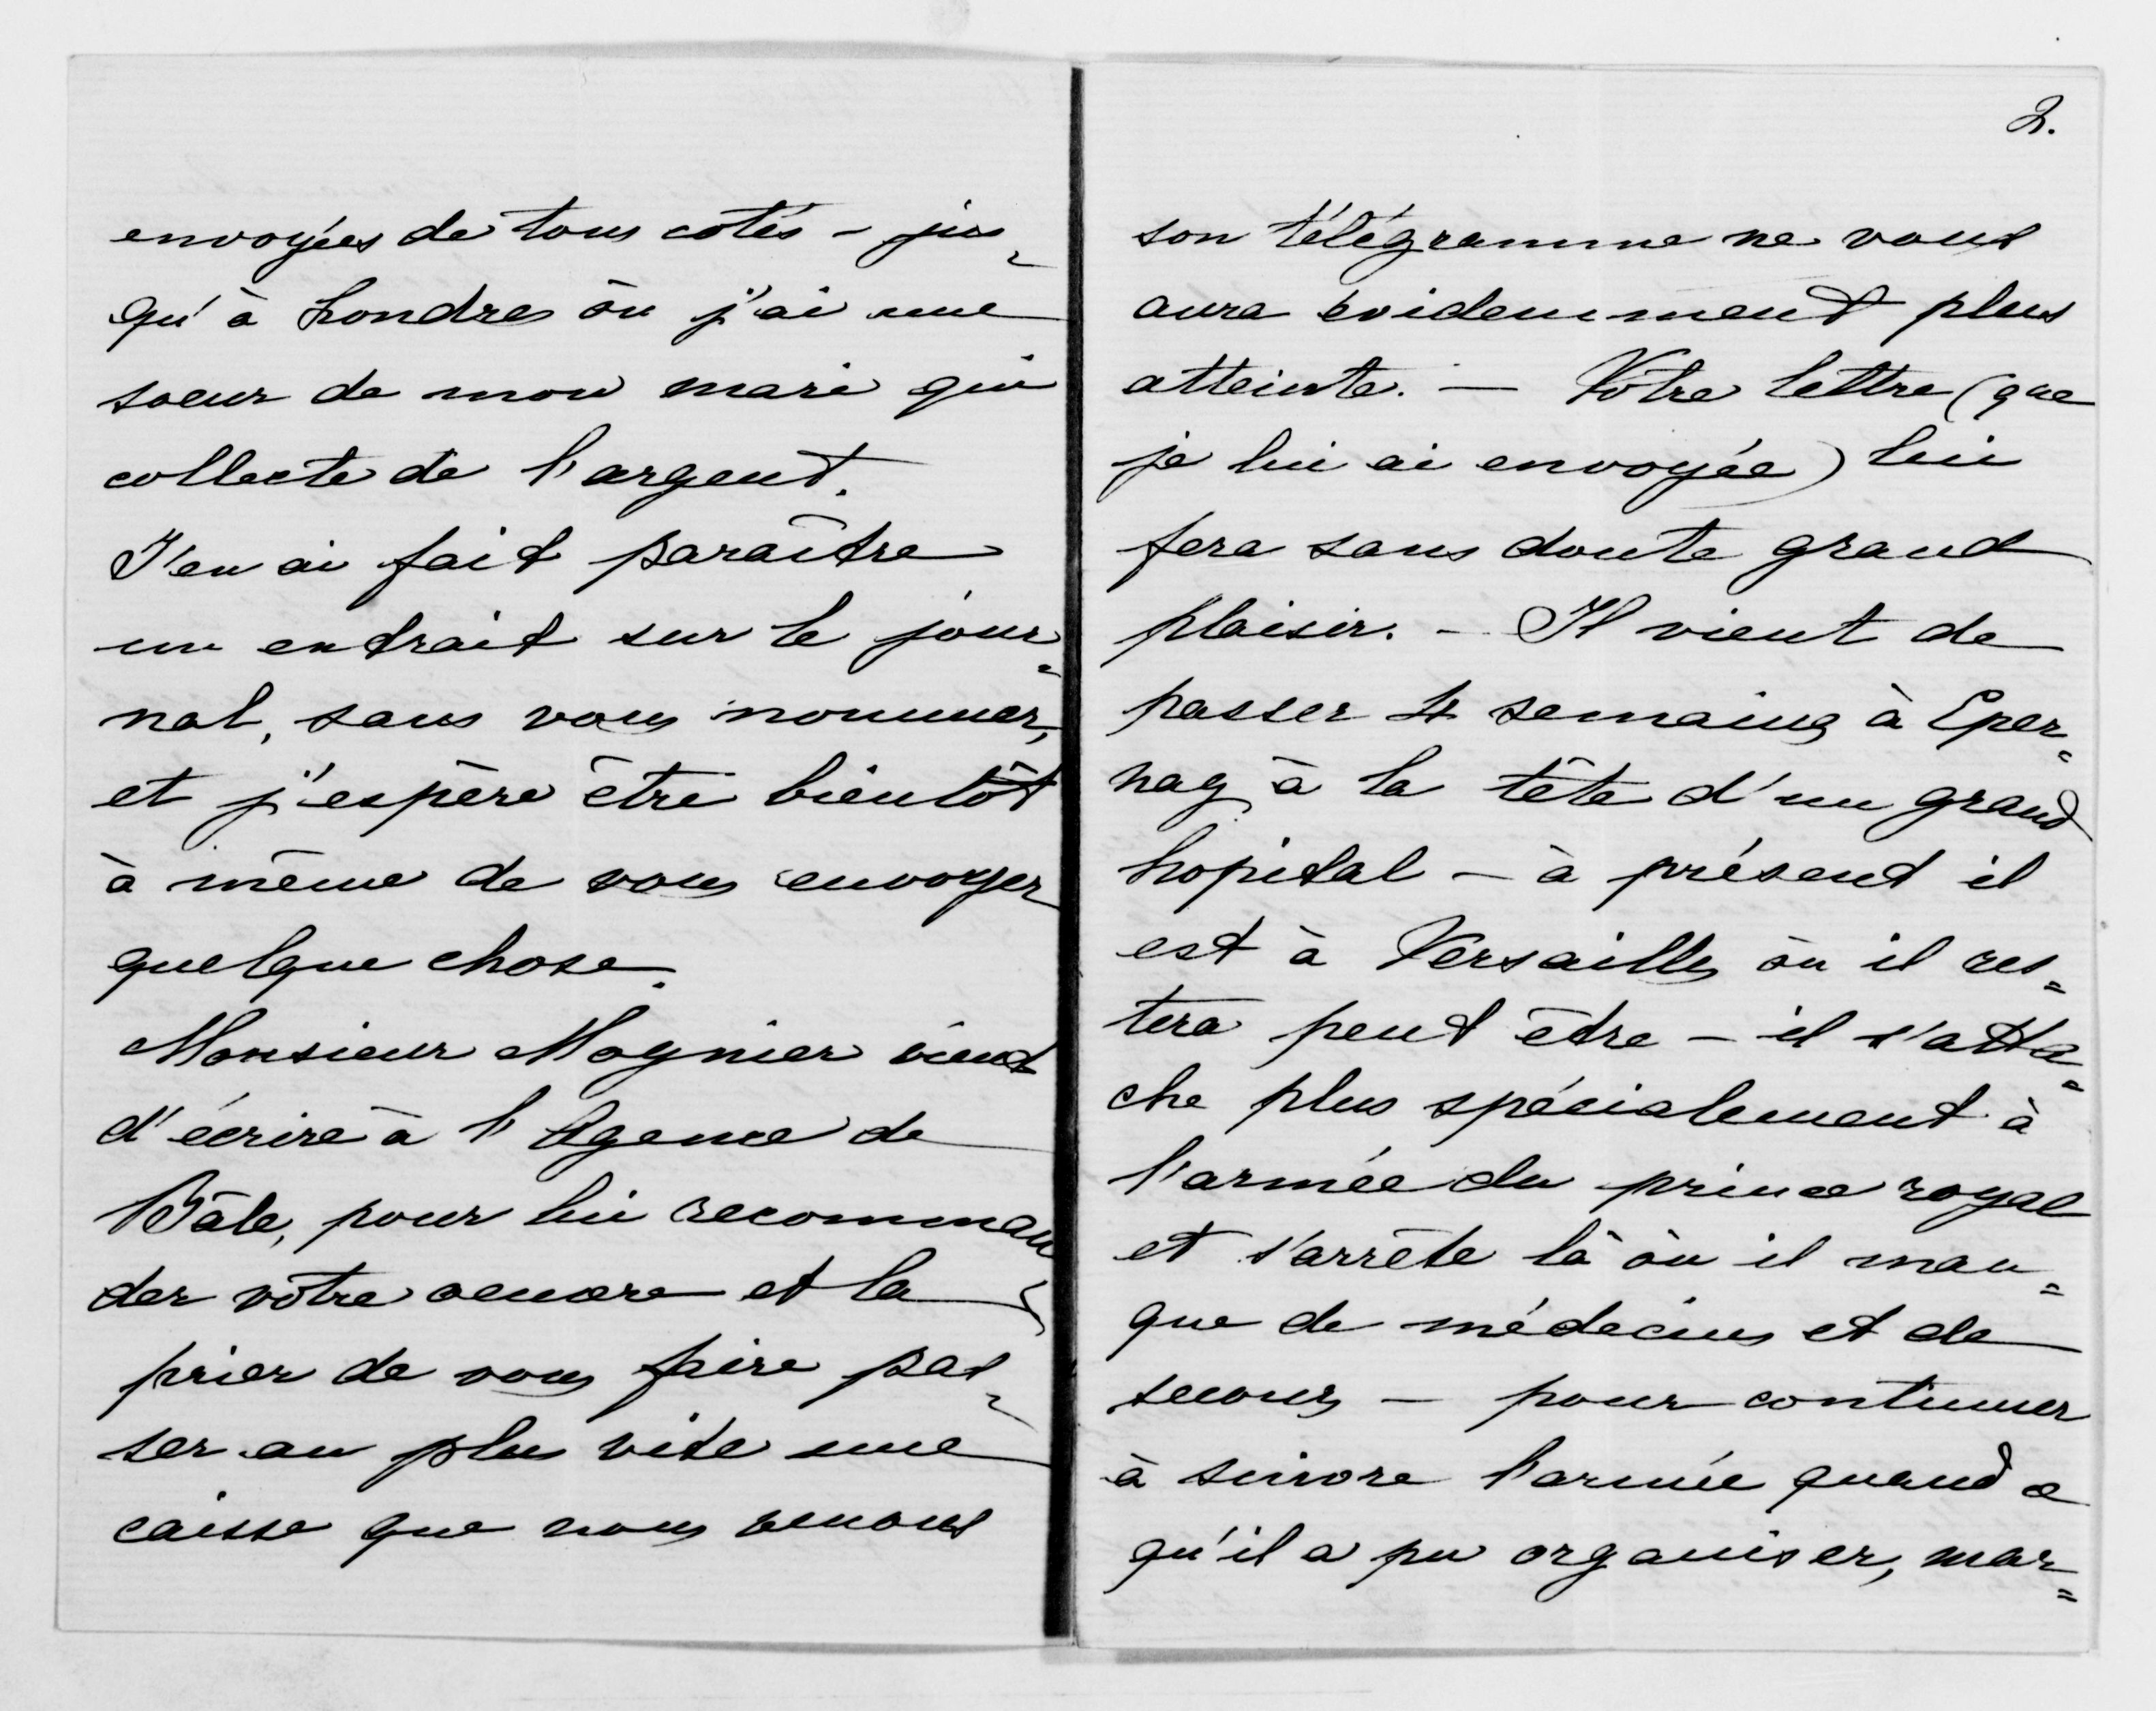 envoyées de tous cotés - jus-
qu'à Londres où j'ai une
soeur de mon mari qui
collecte de l'argent.
J'en ai fait paraître
un extrait sur le jour=
nal, sans vous nommer,
et j'espère être bientôt
à même de vous envoyer
quelque chose.
Monsieur Moynier vient
d'écrire à l'Agence de
Bâle, pour lui recomman
der vôtre oeuvre et la
prier de vous faire pas-
ser au plus vite une
caisse que nous venons
2.
son télégramme ne vous
aura evidemment plus
atteinte. - Vôtre lettre (que
je lui ai envoyée) lui
fera sans doute grand
plaisir. - Il vient de
passer 4 semaines à Eper=
nay à la tête d'un grand
hopital - à présent il
est à Versailles où il res=
tera peut être - il s'atta=
che plus spécialement à
l'armée du prince royal
et s'arrête là où il man=
que de médecins et de
secours - pour continuer
à suivre l'armée quand ce
qu'il a pu organiser, mar=